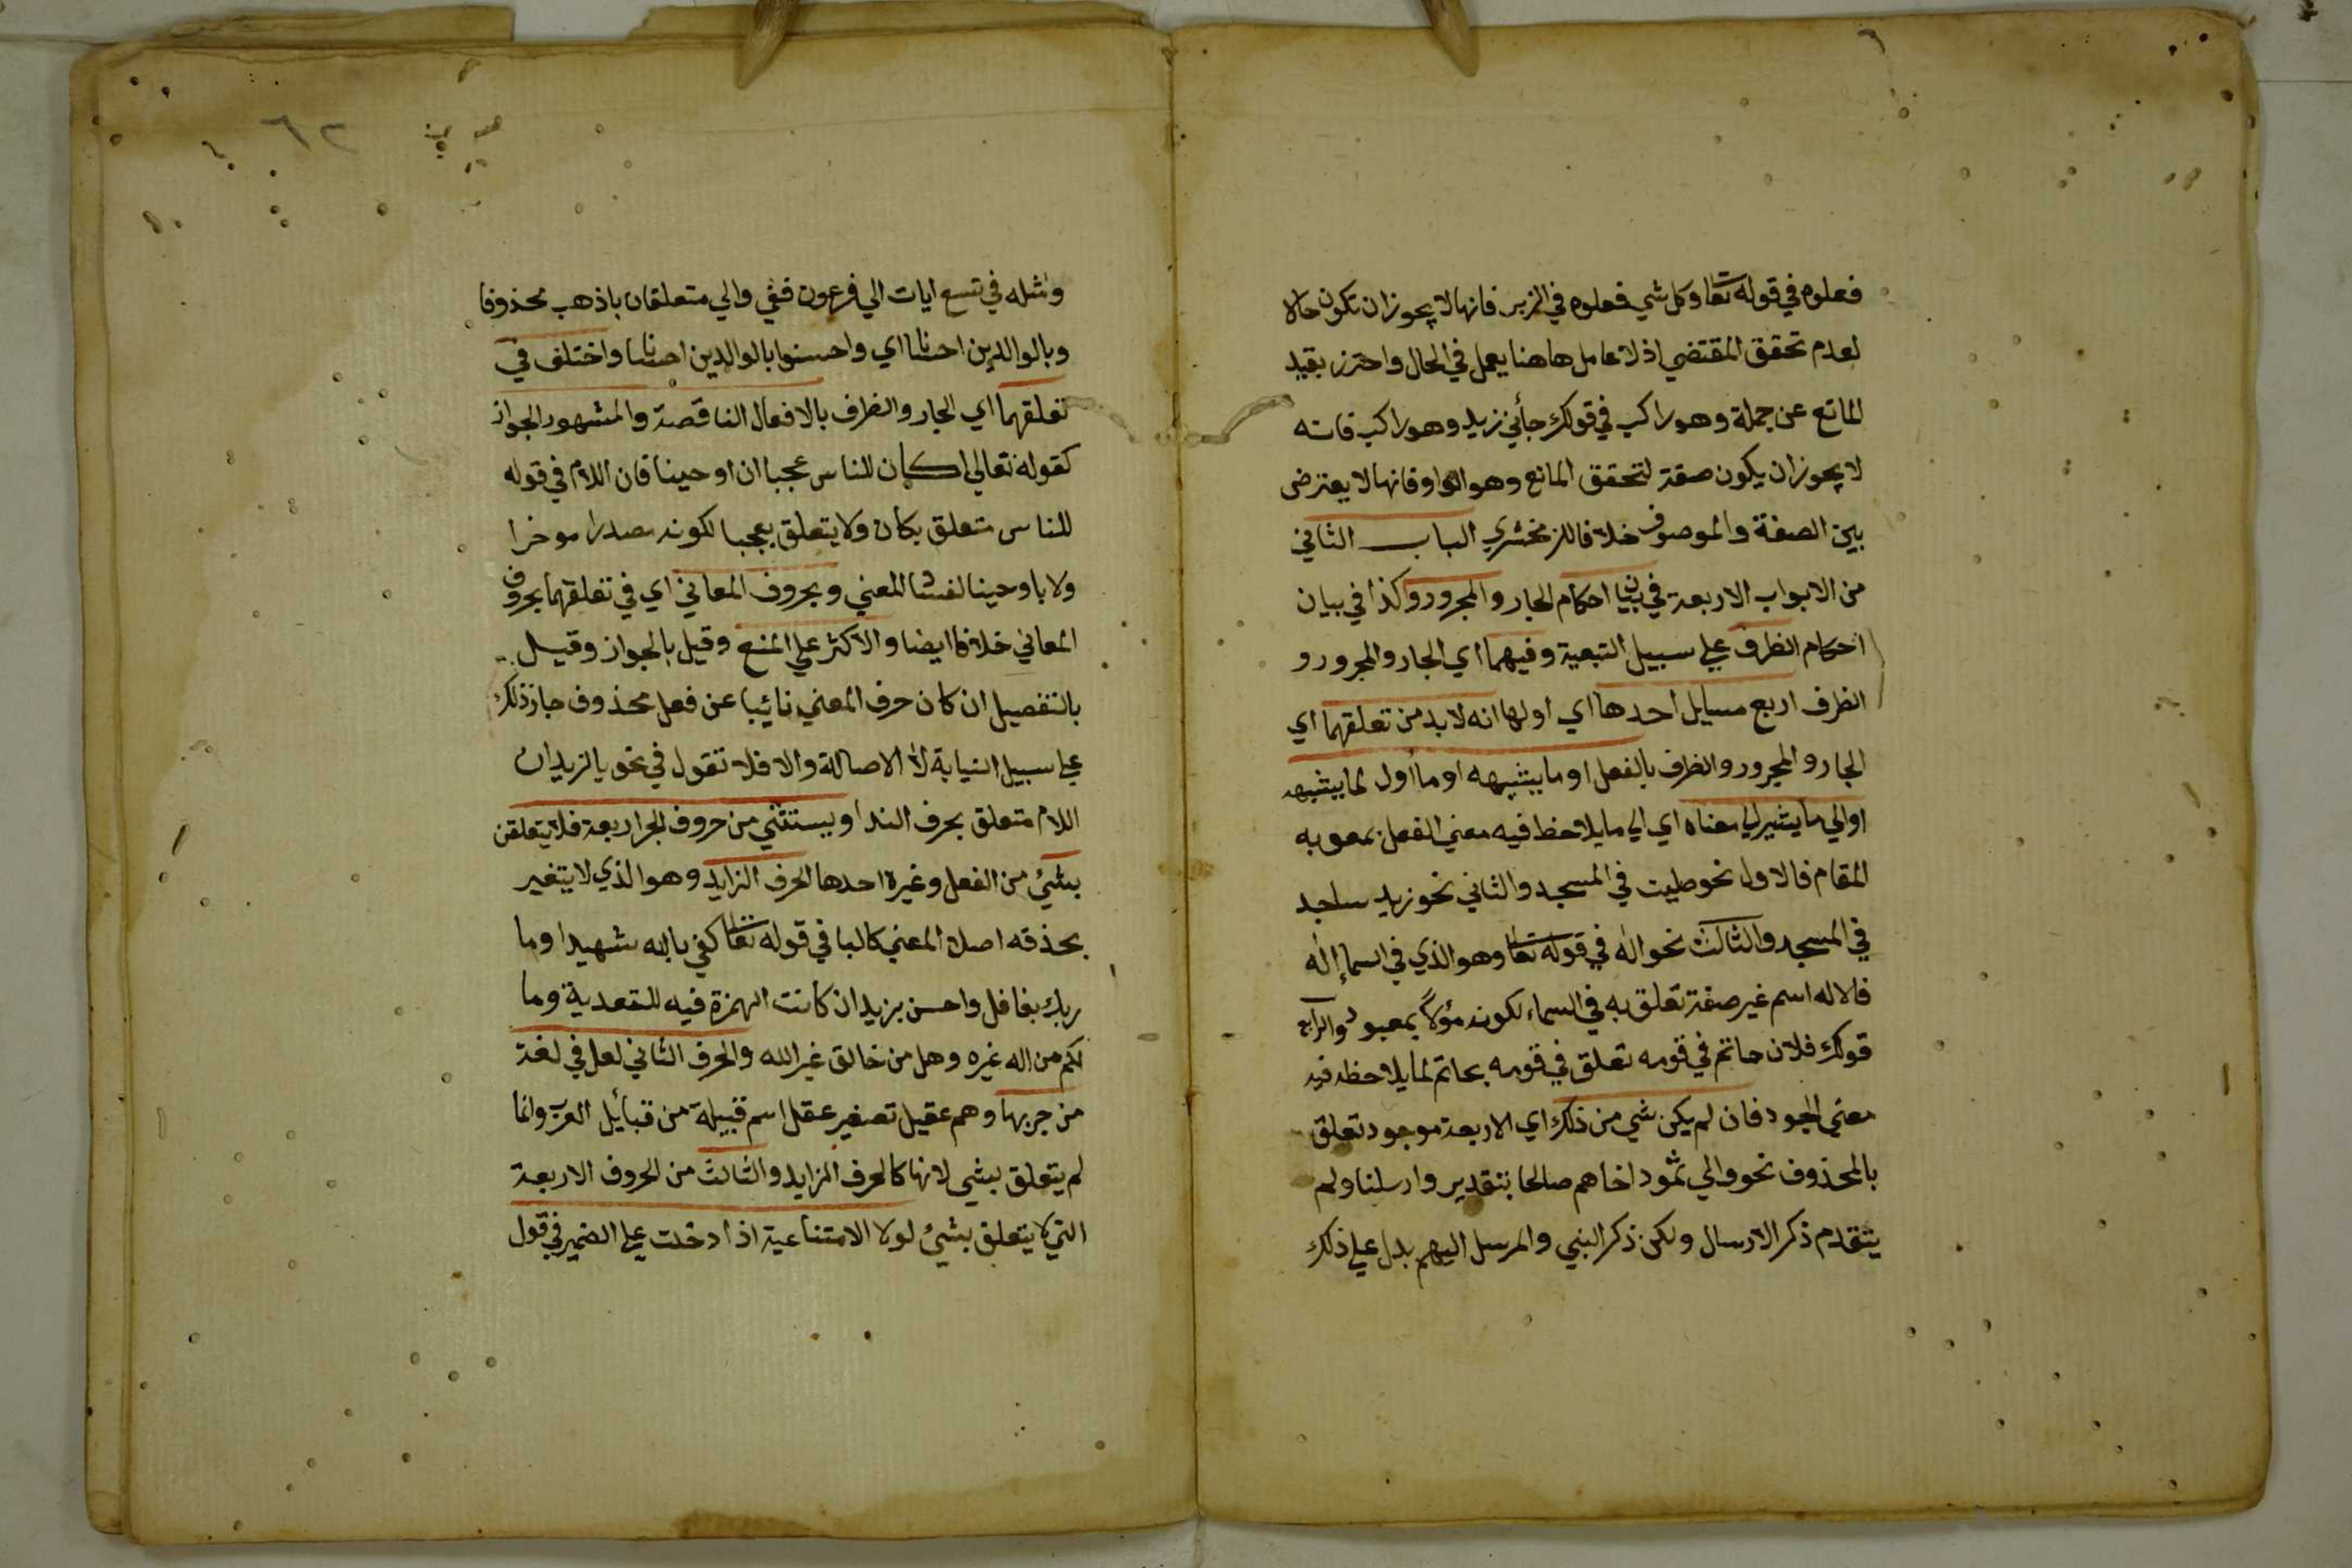 فعلوه في قوله تعا وكل شي فعلوه في الزبر فانها لا يجوز ان تكون حالا
لعدم تحقق المقتضي اذ لا عامل هاهنا يعمل في الحال واحترز بقيد
المانع عن جملة وهو راكب في قولك جأني زيد وهو راكب فانه
لا يجوز ان يكون صفة لتحقق المانع وهو الواو فانها لا يعترض
بين الصفة والموصوف خلافا للزمخشري الباب الثاني
من الابواب الاربعة في بيان احكام الجار والمجرور وكذا في بيان
احكام الظرف علي سبيل التبعية وفيهما اي الجار والمجرور و
الظرف اربع مسايل احدها اي اولها انه لا بد من تعلقهما اي
الجار والمجرور والظرف بالفعل او ما يشبهه او ما أول لما يشبهه
او الي ما يشير الي معناه اي الي ما يلاحظ فيه معني الفعل بمعوبه
المقام فالاول نحو صليت في المسجد والثاني نحو زيد ساجد
في المسجد والثالث نحو اله في قوله تعا وهو الذي في السما إله
فالاله اسم غير صفة تعلق به في السماء لكونه مؤلا بمعبود والرابع
قولك فلان حاتم في قومه تعلق في قومه بحاتم لما يلاحظ فيه
معني الجود فان لم يكن شي من ذلك اي الاربعة موجود تعلق
بالمحذوف نحو والي ثمود اخاهم صالحا بتقدير وارسلنا ولم
يتقدم ذكر الارسال ولكن ذكر النبي والمرسل اليهم يدل علي ذلك
٦٢
ومثله في تسع ايات الي فرعون ففي والي متعلقان باذهب محذوفا
وبالوالدين احسانا اي واحسنوا بالوالدين احسانا واختلف في
تعلقهما اي الجار والظرف بالافعال الناقصة والمشهور الجواز
كقوله تعالي اكان للناس عجبا ان اوحينا فان اللام في قوله
للناس متعلق بكان ولا يتعلق بعجبا لكونه مصدرا موخرا
ولا باوحينا لفساد المعني وبحروف المعاني اي في تعلقهما بحروف
المعاني خلافا ايضا والاكثر علي المنع وقيل بالجواز وقيل
بالتفصيل ان كان حرف المعني نائبا عن فعل محذوف جاز ذلك
علي سبيل النيابة لا الاصالة والا فلا تقول في نحو يالزيد ان
اللام متعلق بحرف الندا ويستثني من حروف الجر اربعة فلا يتعلقن
بشئ من الفعل وغيره احدها الحرف الزايد وهو الذي لا يتغير
بحذفه اصل المعني كالبا في قوله تعا كفي بالله شهيدا وما
ربك بغافل واحسن بزيد ان كانت الهمزة فيه للتعدية وما
لكم من اله غيره وهل من خالق غير الله والحرف الثاني لعل في لغة
من جر بها وهم عقيل تصغير عقل اسم قبيلة من قبائل العرب وانما
لم يتعلق بشي لانها كالحرف الزايد والثالث من الحروف الاربعة
التي لا يتعلق بشئ لولا الامتناعية اذا دخلت علي الضمير في قول